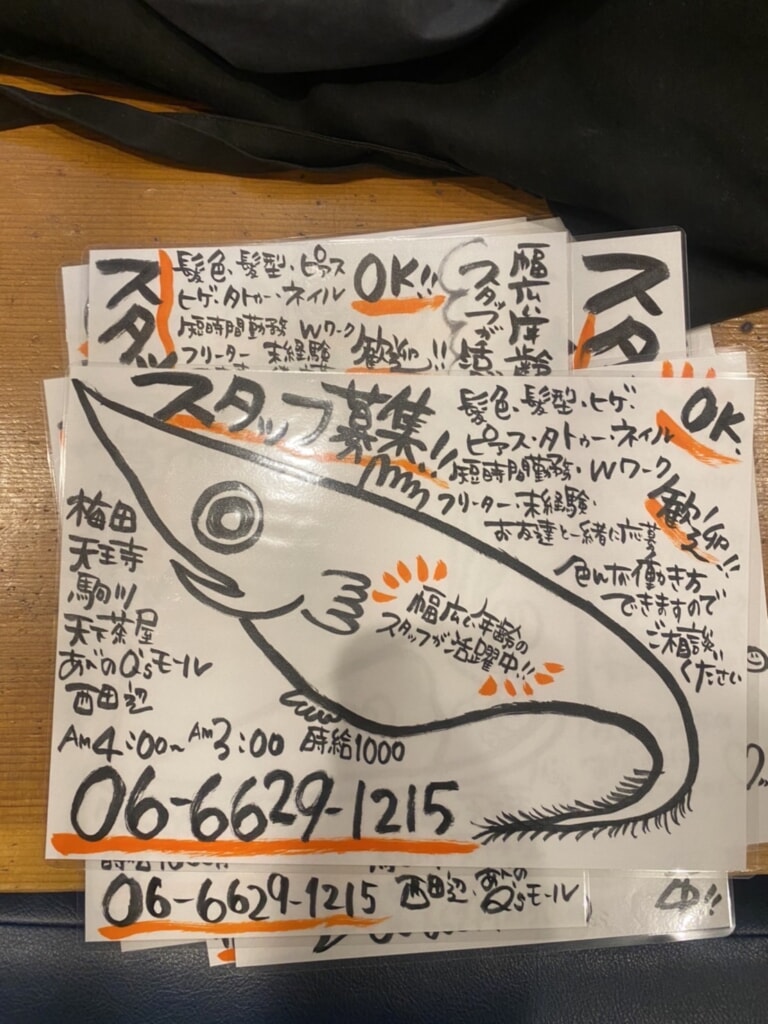 スタッ
髪色、髪型・ピアス
ヒゲ・タトゥー・ネイル
OK!!
短時間勤務 Wワーク
フリーター 未経験
歓迎!!
幅広い年齢
スタッフが活
スタ
スタッフ募集!!
髪色、髪型・ヒゲ・
ピアス・タトゥー・ネイル
OK.
短時間勤務・Wワーク
フリーター・未経験・
お友達と一緒に応募
歓迎!!
色んな働き方
できますので
ご相談
ください
幅広い年齢の
スタッフが活躍中!!
梅田
天王寺
駒川
天下茶屋
あべのQ'sモール
西田辺
AM4:00~AM3:00 時給1000
06-6629-1215
06-6629-1215 西田辺、あべのQ'sモール
中!!